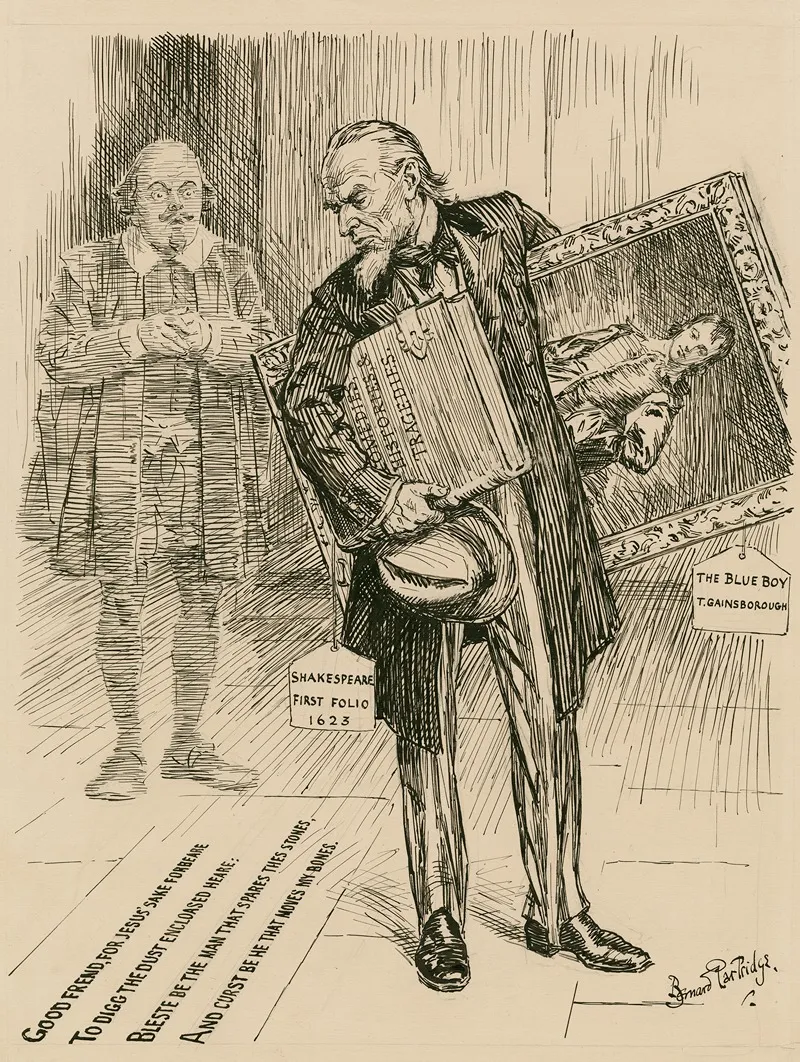 COMEDIES
HISTORIES &
TRAGEDIES.
THE BLUE BOY
T. GAINSBOROUGH
SHAKESPEARE
FIRST FOLIO
1623
GOOD FREND, FOR JESUS' SAKE FORBEARE
TO DIGG THE DUST ENCLOASED HEARE:
BLESTE BE THE MAN THAT SPARES THES STONES,
AND CURST BE HE THAT MOVES MY BONES.
Bernard Partridge.